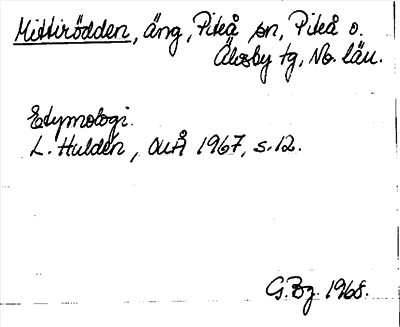 Mittirödden, äng, Piteå sn, Piteå o.
Älvsby tg, Nb. län.
Etymologi.
L. Huldén, OUÅ 1967, s.12.
G.Bg. 1968.